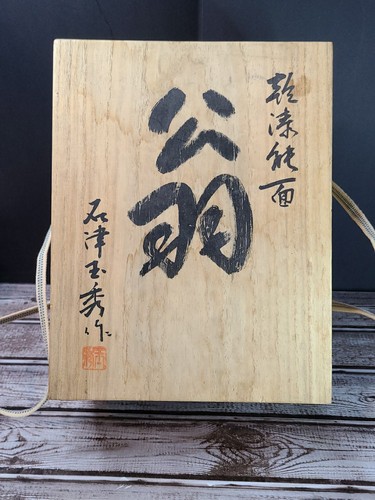 乾漆能面
翁
石津玉秀作